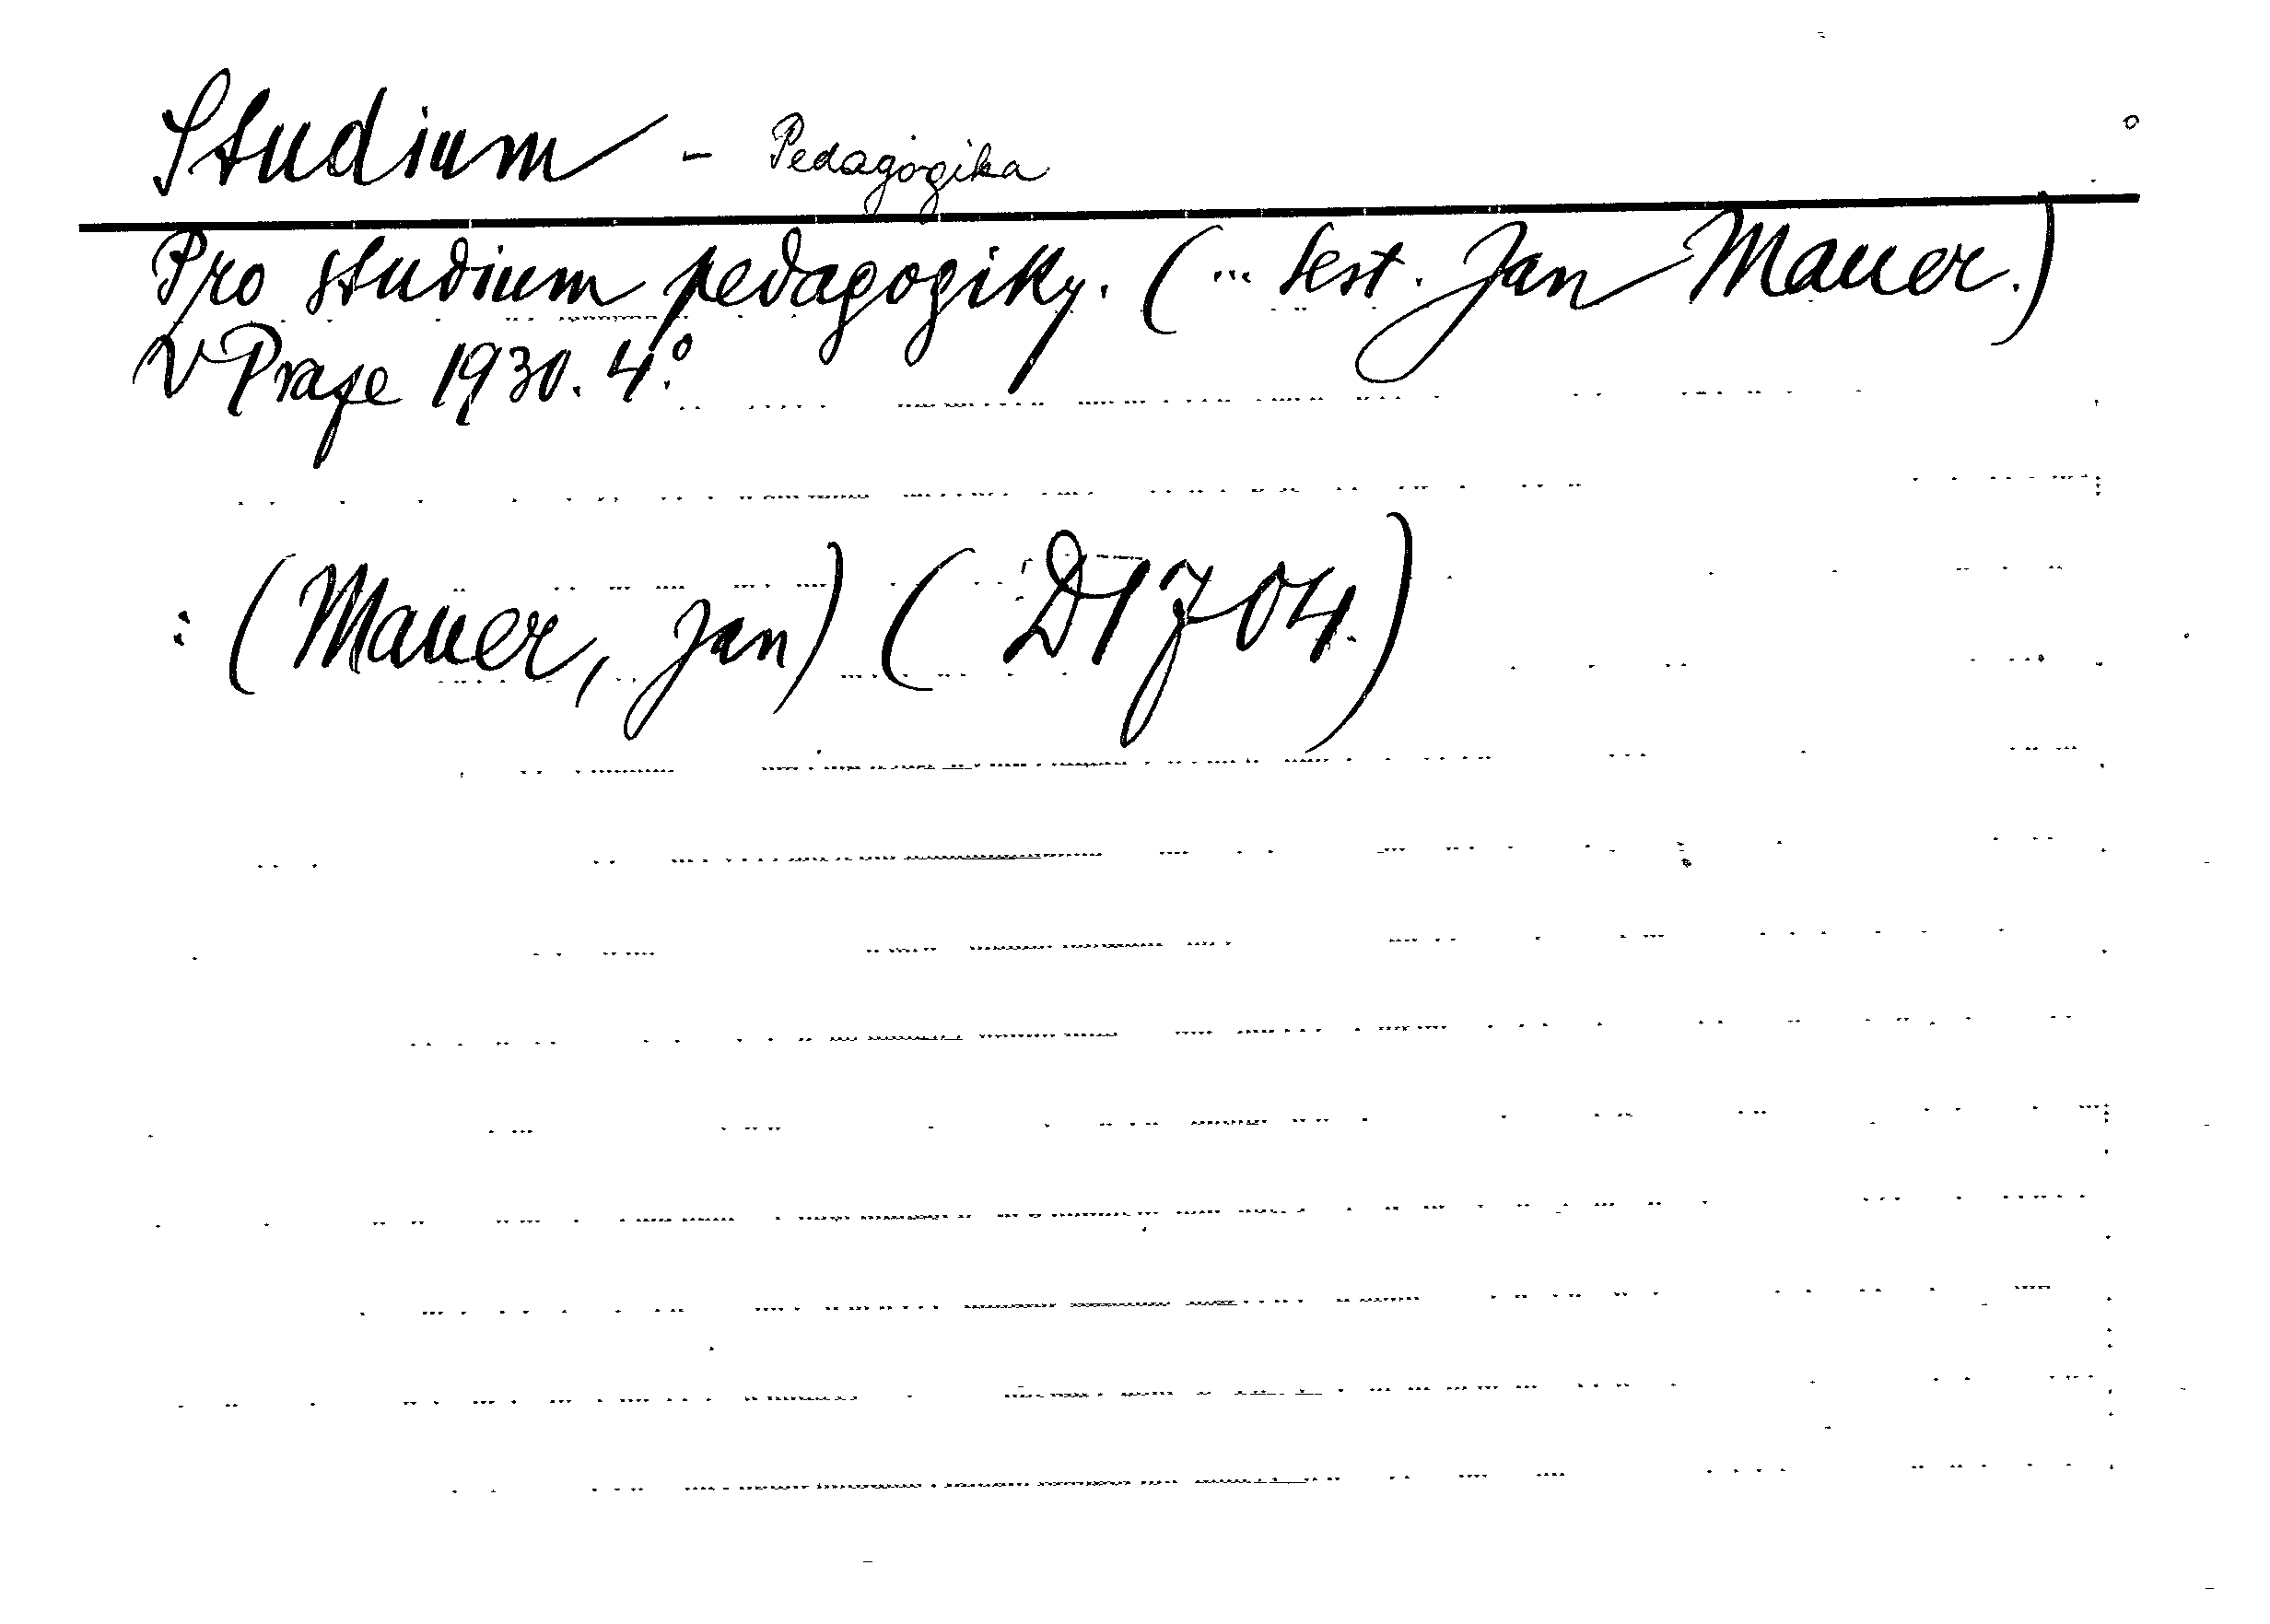 Studium - Pedagogika
Pro studium pedagogiky. (... Sest. Jan Mauer.)
V Praze 1930. 4°.
: (Mauer, Jan) (D1704.)